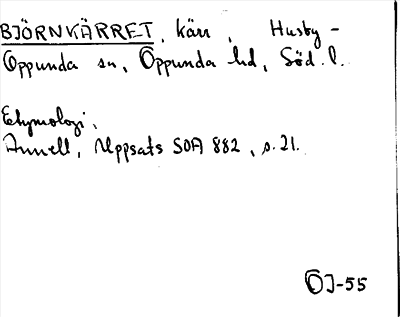 BJÖRNKÄRRET, kärr, Husby-
Oppunda sn, Oppunda hd, Söd. l.
Etymologi,
Annell, Uppsats SOA 882, s. 21.
ÖJ-55